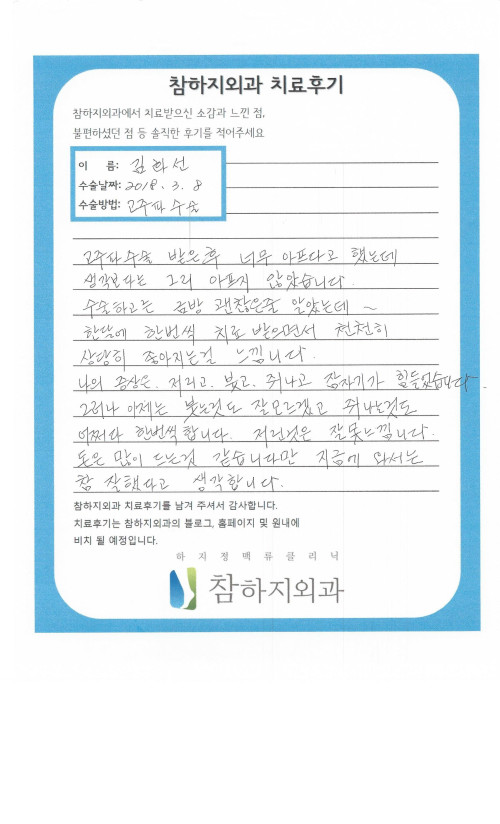 참하지외과 치료후기
참하지외과에서 치료받으신 소감과 느낀 점,
불편하셨던 점 등 솔직한 후기를 적어주세요
이 름: 김화선
수술날짜: 2018. 3. 8
수술방법: 고주파 수술
고주파수술 받은후 너무 아프다고 했는데
생각보다는 그리 아프지 않았습니다.
수술하고는 금방 괜찮은줄 알았는데 ~
한달에 한번씩 치료 받으면서 천천히
상당히 좋아지는걸 느낍니다.
나의 증상은. 저리고. 붓고. 쥐나고 잠자기가 힘들었습니다.
그러나 이제는 붓는것도 잘모르겠고 쥐나는것도
어쩌다 한번씩 합니다. 저린것은 잘못느낍니다.
돈은 많이 드는것 같습니다만 지금에 와서는
참 잘했다고 생각합니다.
참하지외과 치료후기를 남겨 주셔서 감사합니다.
치료후기는 참하지외과의 블로그, 홈페이지 및 원내에
비치 될 예정입니다.
하지정맥류클리닉
참하지외과